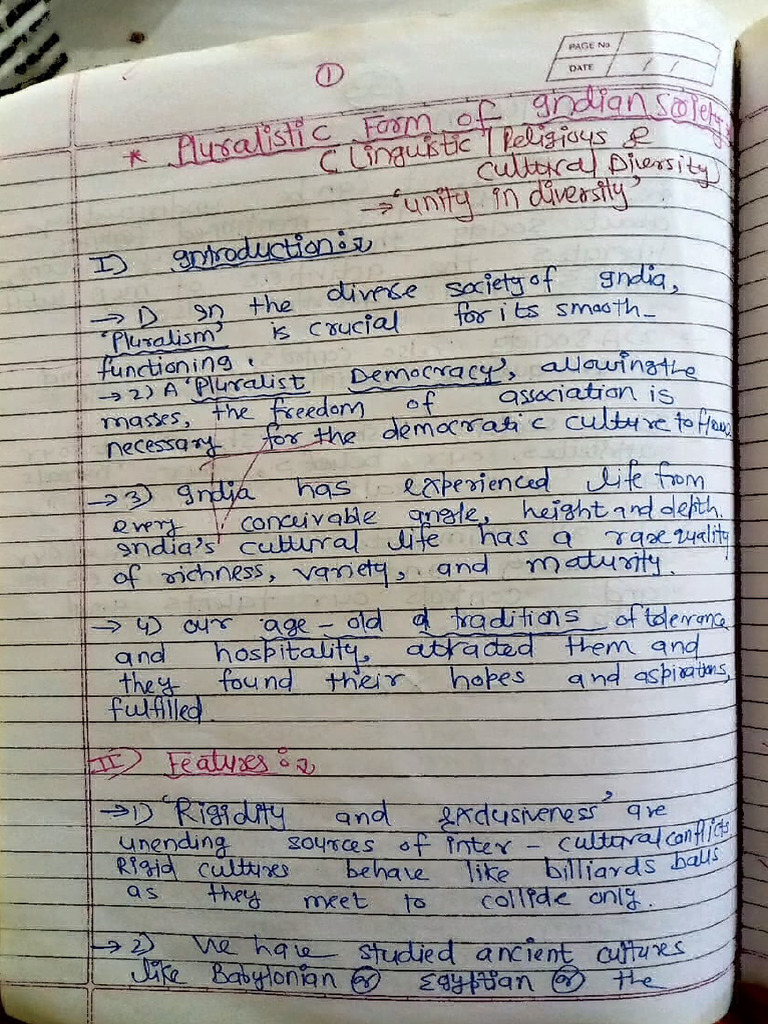 PAGE No.
DATE / /
①
* Pluralistic Form of Indian Society
( Linguistic / Religious &
Cultural Diversity)
→ 'unity in diversity'
I) Introduction :-
→ 1) In the diverse society of India,
'Pluralism' is crucial for its smooth-
functioning.
→ 2) A 'Pluralist Democracy', allowing the
masses, the freedom of association is
necessary for the democratic culture to flow.
→ 3) India has experienced life from
every conceivable angle, height and depth.
India's cultural life has a rare quality
of richness, variety, and maturity.
→ 4) our age-old traditions of tolerance
and hospitality, attracted them and
they found their hopes and aspirations,
fulfilled.
II) Features :-
→ 1) 'Rigidity and exclusiveness' are
unending sources of inter-cultural conflicts
Rigid cultures behave like billiards balls
as they meet to collide only.
→ 2) We have studied ancient cultures
like Babylonian or Egyptian or the